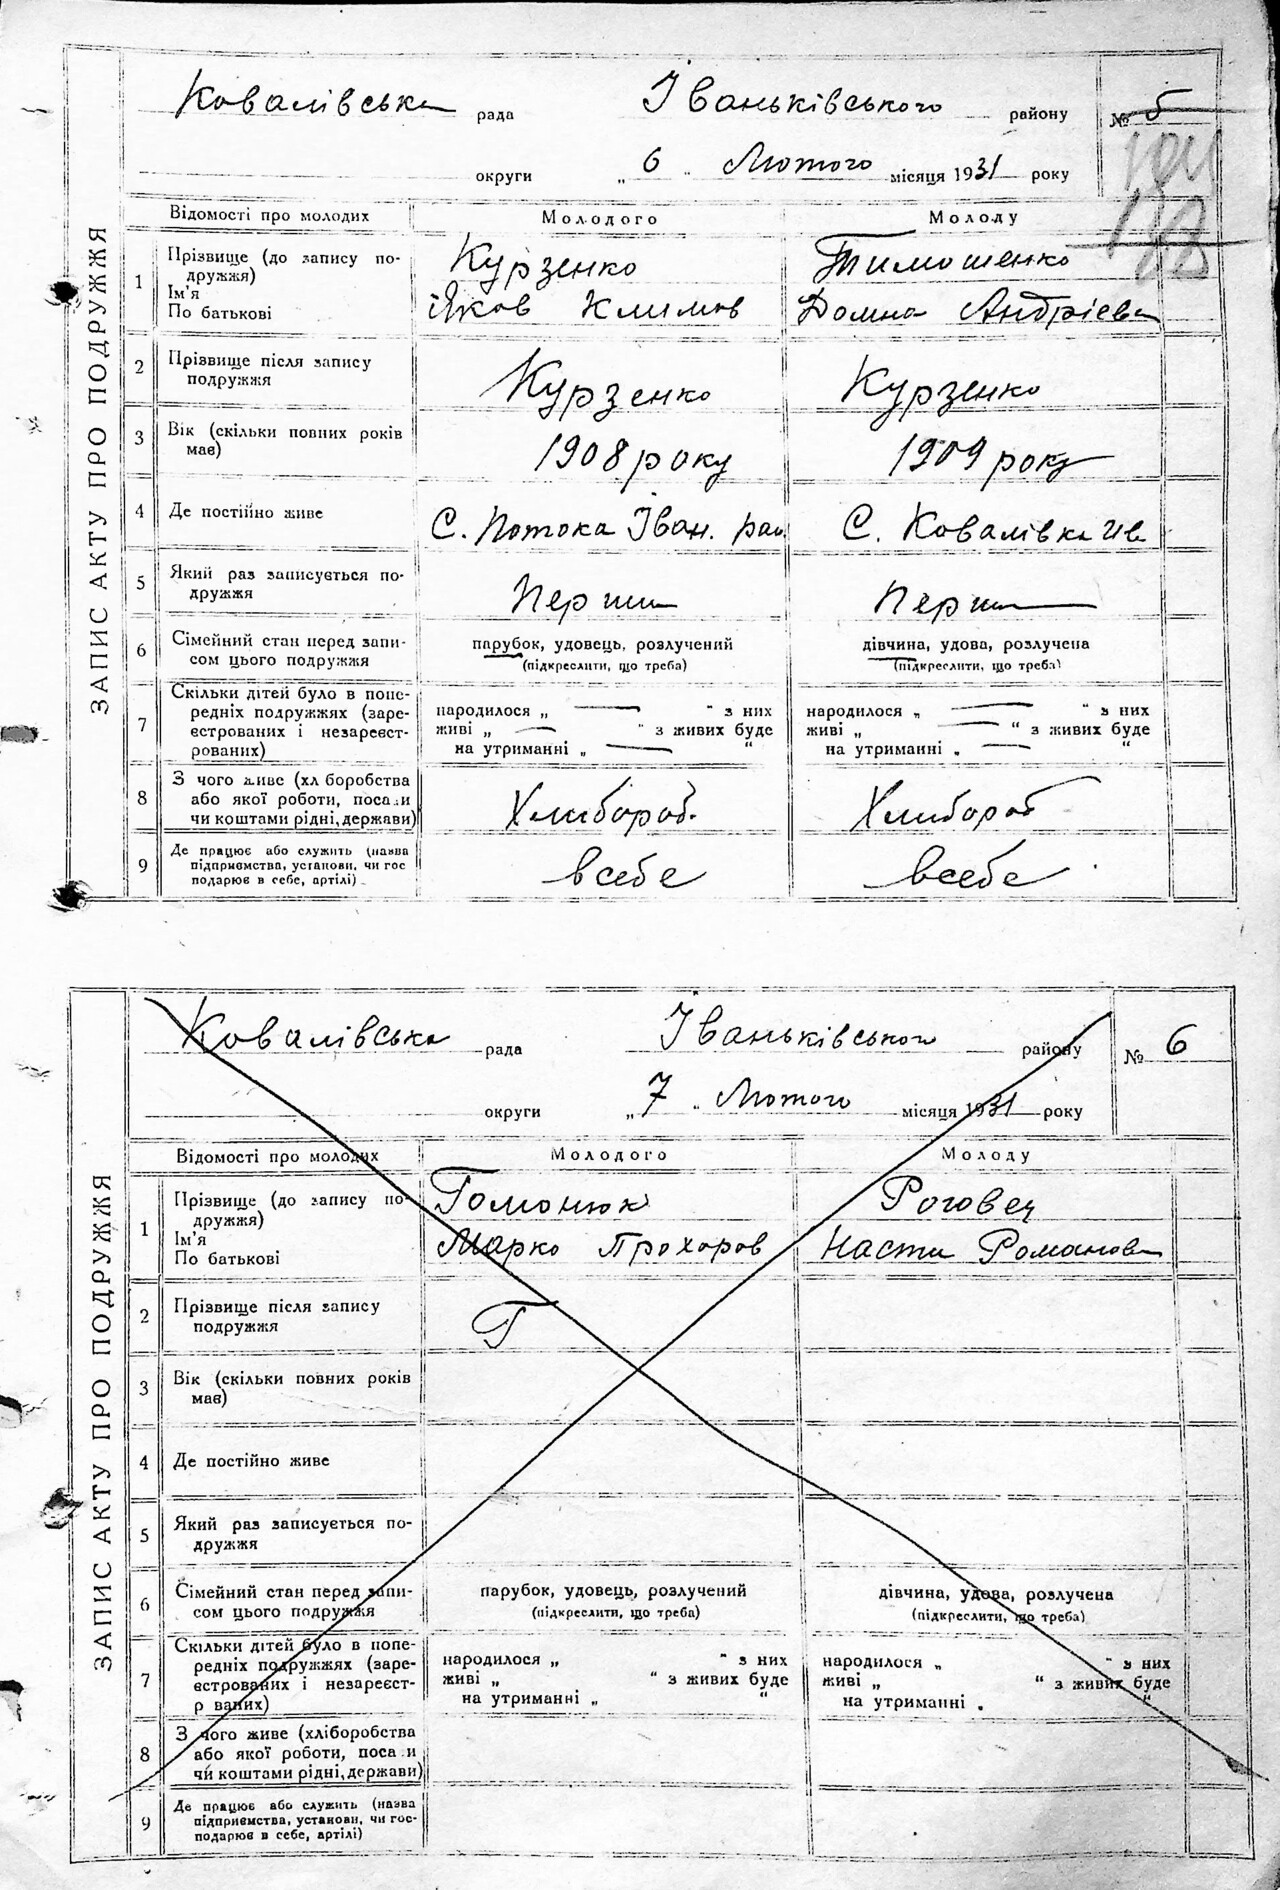 ЗАПИС АКТУ ПРО ПОДРУЖЖЯ
Ковалівська рада Іваньківського району № 5
104
округи „ 6 " Лютого місяця 1931 року
Відомості про молодих Молодого Молоду
1 Прізвище (до запису по-
дружжя)
Ім'я
По батькові
Курзенко
Яков Климов
Тимошенко
Домна Андрієва
2 Прізвище після запису
подружжя
Курзенко
Курзенко
3 Вік (скільки повних років
має)
1908 року
1909 року
4 Де постійно живе
С. Потока Іван. рай
С. Ковалівка Ив
5 Який раз записується по-
дружжя
6 Сімейний стан перед запи-
сом цього подружжя
парубок, удовець, розлучений
(підкреслити, що треба)
дівчина, удова, розлучена
(підкреслити, що треба)
7 Скільки дітей було в попе-
редніх подружжях (заре-
єстрованих і незареєст-
рованих)
народилося „ — " з них
живі „ — " з живих буде
на утриманні „ — "
народилося „ — " з них
живі „ — " з живих буде
на утриманні „ — "
8 З чого живе (хл боробства
або якої роботи, посади
чи коштами рідні, держави)
Хлибороб.
Хлибороб
9 Де працює або служить (назва
підприємства, установи, чи гос
подарює в себе, артілі)
всебе
всебе
ЗАПИС АКТУ ПРО ПОДРУЖЖЯ
Ковалівська рада Іваньківського району № 6
округи „ 7 " Лютого місяця 1931 року
Відомості про молодих Молодого Молоду
1 Прізвище (до запису по-
дружжя)
Ім'я
По батькові
Гомонюк
Марко Прохоров
Роговец
Насти Романова
2 Прізвище після запису
подружжя
Г
3 Вік (скільки повних років
має)
4 Де постійно живе
5 Який раз записується по-
дружжя
6 Сімейний стан перед запи-
сом цього подружжя
парубок, удовець, розлучений
(підкреслити, що треба)
дівчина, удова, розлучена
(підкреслити, що треба)
7 Скільки дітей було в попе-
редніх подружжях (заре-
єстрованих і незареєст-
р ваних)
народилося „ " з них
живі „ " з живих буде
на утриманні „ "
народилося „ " з них
живі „ " з живих буде
на утриманні „ "
8 З чого живе (хліборобства
або якої роботи, поса и
чи коштами рідні, держави)
9 Де працює або служить (назва
підприємства, установи, чи гос-
подарює в себе, артілі)